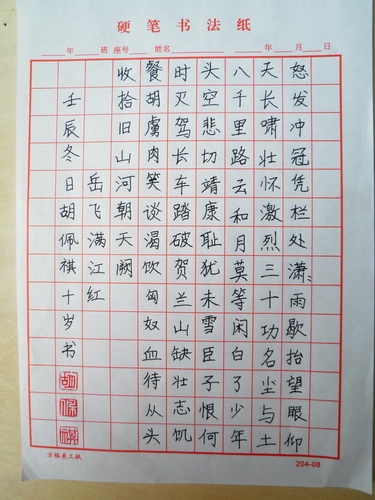 硬笔书法纸
年 班 座号 姓名 年 月 日
怒发冲冠凭栏处潇:雨歇抬望眼仰
天长啸壮怀激烈三十功名尘与土
八千里路云和月莫等闲白了少年
头空悲切靖康耻犹未雪臣子恨何
时灭驾长车踏破贺兰山缺壮志饥
餐胡虏肉笑谈渴饮匈奴血待从头
收拾旧山河朝天阙
岳飞满江红
壬辰冬日胡佩祺十岁书
胡
佩
祺
方格美工纸
204-08